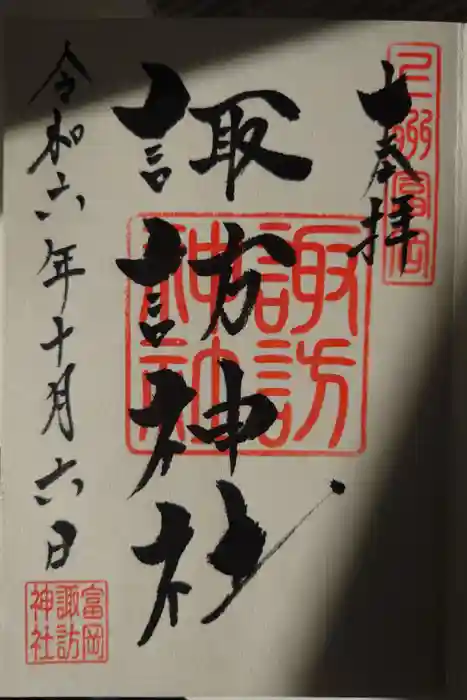 上州富岡
奉拝
諏訪神社
諏訪
神社
令和六年十月六日
富岡
諏訪
神社